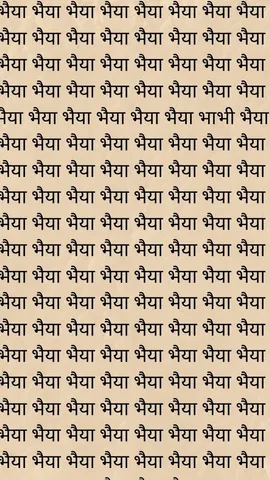 भैया भैया भैया भैया भैया भैया भैया भैया
भैया भैया भैया भैया भैया भैया भैया भैया
भैया भैया भैया भैया भैया भैया भैया भैया
भैया भैया भैया भैया भैया भैया भैया भैया
भैया भैया भैया भैया भैया भैया भाभी भैया
भैया भैया भैया भैया भैया भैया भैया भैया
भैया भैया भैया भैया भैया भैया भैया भैया
भैया भैया भैया भैया भैया भैया भैया भैया
भैया भैया भैया भैया भैया भैया भैया भैया
भैया भैया भैया भैया भैया भैया भैया भैया
भैया भैया भैया भैया भैया भैया भैया भैया
भैया भैया भैया भैया भैया भैया भैया भैया
भैया भैया भैया भैया भैया भैया भैया भैया
भैया भैया भैया भैया भैया भैया भैया भैया
भैया भैया भैया भैया भैया भैया भैया भैया
भैया भैया भैया भैया भैया भैया भैया भैया
भैया भैया भैया भैया भैया भैया भैया भैया
भैया भैया भैया भैया भैया भैया भैया भैया